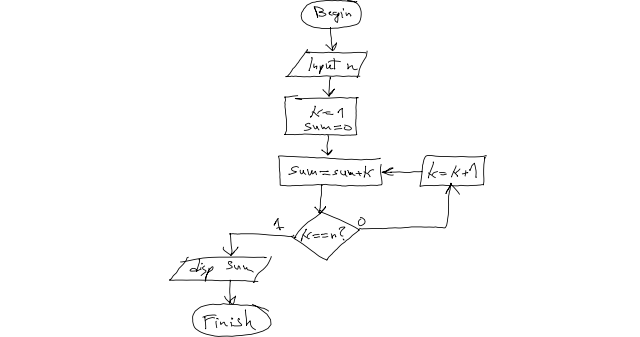 Begin
Input n
k=1
sum=0
sum=sum+k
k=k+1
1
0
k==n?
disp sum
Finish